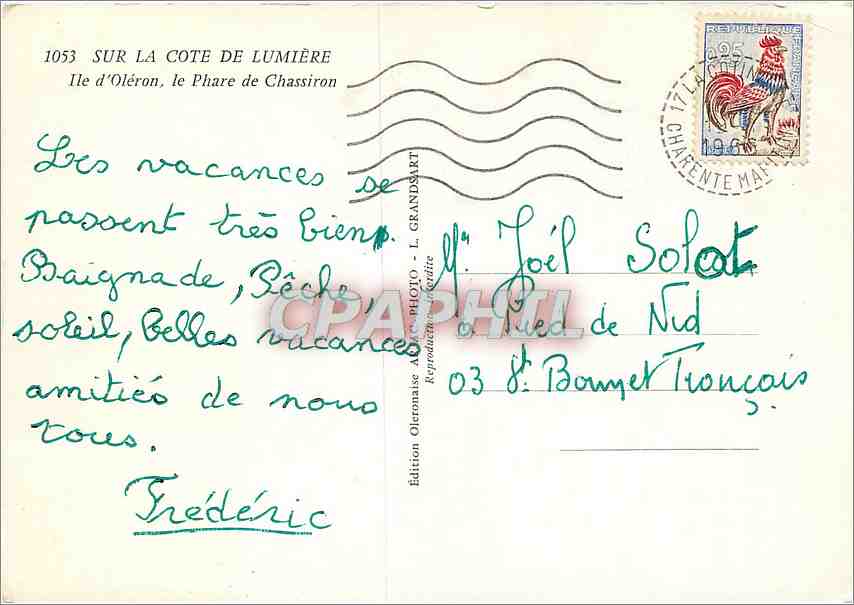 1053 SUR LA COTE DE LUMIÈRE
Ile d'Oléron, le Phare de Chassiron
Les vacances se
passent très bien.
Baignade, Pêche,
soleil, belles vacances
amitiés de nous
tous.
Frédéric
Édition Oleronaise PHOTO - L. GRANDSART
Reproduction interdite
RÉPUBLIQUE FRANÇAISE
0,25
17 LA COTIN
CHARENTE MAR
196
Mr Joël Solcat
à Pied de Nid
03 St. Bonnet Tronçais
CPAPHIL